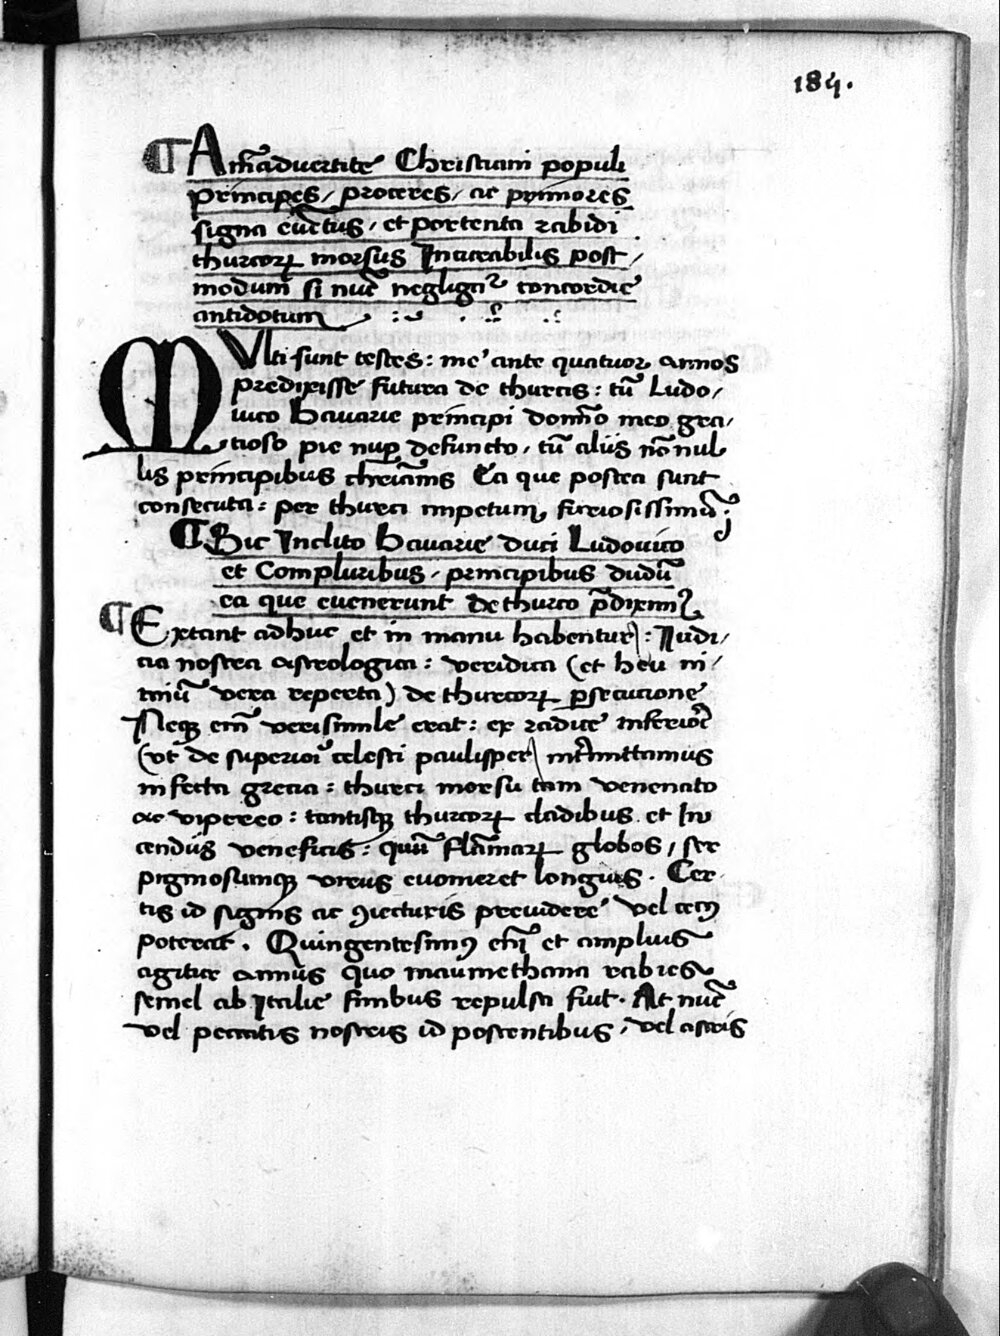 184.
¶ Aīmaduertite Christiani populi
principes, proceres, ac primores
signa cūctus, et portenta rabidi
thurcoꝝ morsus Inacabilis post,
modum si nūc negligiᵗ concordie
antidotum
MVlti sunt testes: me ante quatuor annos
predixisse futura de thurcis: tū Ludo,
uico Bauarie principi domīo meo gra,
tioso pie nuꝑ defuncto, tū aliis nōnul
lis principibus chrēianis Ea que postea sunt
consecuta: per thurci impetum, furiosissimā:
¶ Hic Inclito Bauarie duci Ludouico
et Compluribus, principibus dudū
ea que euenerunt de thurco p̄dixim᷒
¶ Extant adhuc et in manu habentur: Iudi,
cia nostra astrologica: veridica (et heu ni,
miū vera reperta) de thurcoꝝ ꝑsecucione
Neqꝫ em̄ verisimile erat: ex radice inferiori
(vt de superiori celesti paulisper) int̄mittamus
infecta grecia: thurci morsu tam venenato
ac vipereo: tantisqꝫ thurcoꝝ cladibus et In
cendiis veneficis: quū flāmaꝝ globos, ser
piginosumqꝫ vireus euomeret longius. Cer
tis id signis ac ꝯiecturis preuidere vel cecꝰ
poterat. Quingentesimꝰ em̄ et amplius
agitur annus quo maumethana rabies
semel ab Italie finibus repulsa fiut. At nūc
vel peccatis nostris id poscentibus, vel astris